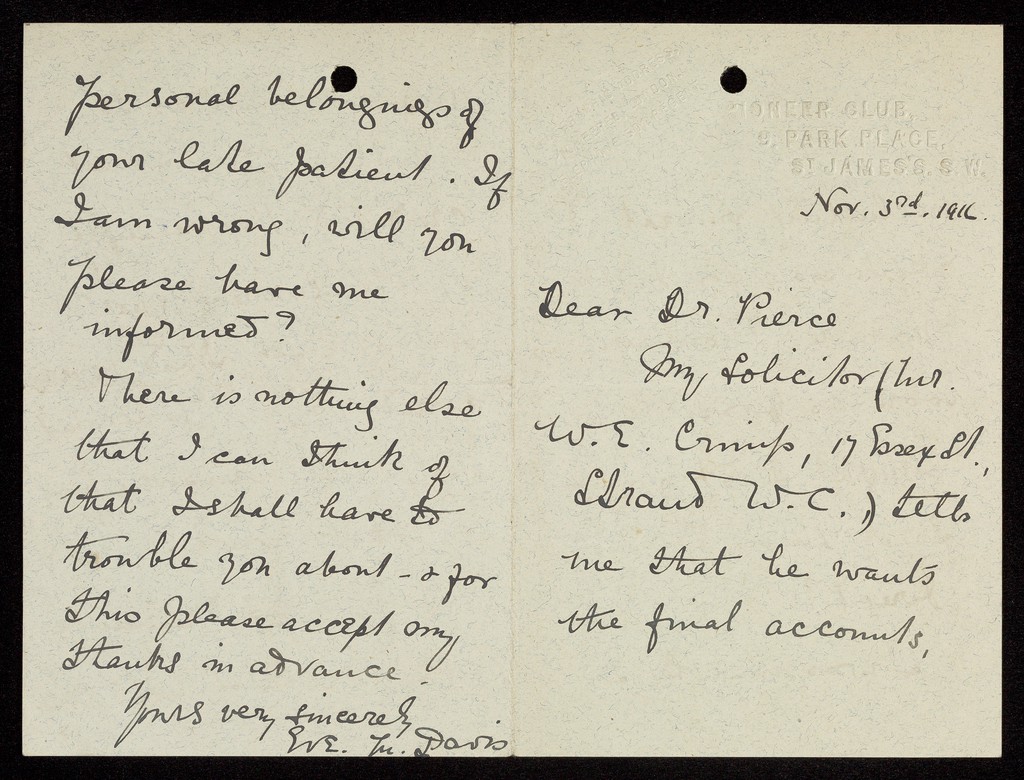 PIONEER CLUB,
9, PARK PLACE,
ST JAMES'S. S.W.
Nov. 3rd. 1916.
Dear Dr. Pierce
My Solicitor (Mr.
W. E. Crimp, 17 Essex St.,
Strand W.C.,) tells
me that he wants
the final accounts,
personal belongings of
your late patient. If
I am wrong, will you
please have me
informed?
There is nothing else
that I can think of
that I shall have to
trouble you about - & for
this please accept my
thanks in advance.
Yours very sincerely
Eve. M. Davis